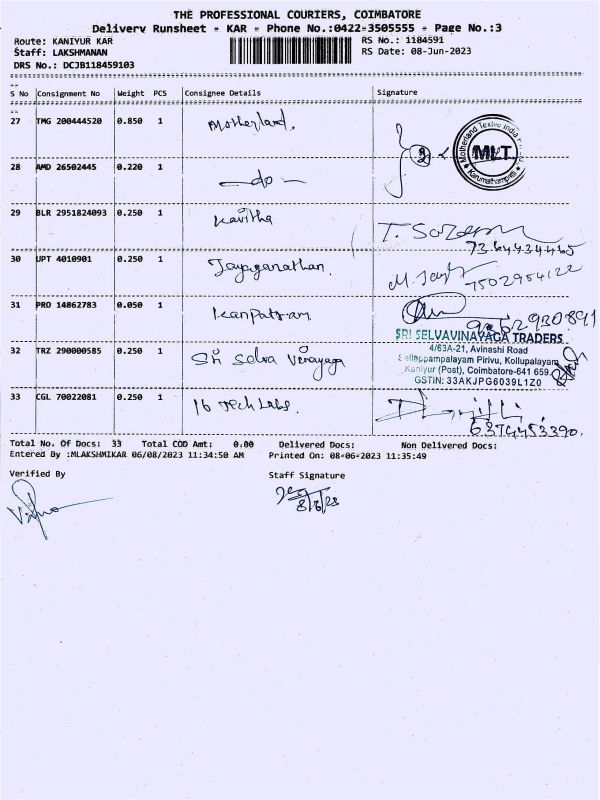 THE PROFESSIONAL COURIERS, COIMBATORE
Delivery Runsheet - KAR - Phone No.:0422-3505555 - Page No.:3
Route: KANIYUR KAR
RS No.: 1184591
Staff: LAKSHMANAN
RS Date: 08-Jun-2023
DRS No.: DCJB118459103
S No Consignment No Weight PCS Consignee Details Signature
27 TMG 200444520 0.850 1 Motherland. 2
Motherland Textile India
MLT
Karumathampatti
28 AMD 26502445 0.220 1 -do-
29 BLR 2951824093 0.250 1 Kavitha
7364434465
30 UPT 4010901 0.250 1 Jayaganathan. M. Jay
7502954122
31 PRO 14862783 0.050 1 Kanpatram
9262930891
SRI SELVAVINAYAGA TRADERS
4/63A-21, Avinashi Road
Pirivu, Kollupalayam
Kaniyur (Post), Coimbatore-641 659.
GSTIN: 33AKJPG6039L1Z0
32 TRZ 290000585 0.250 1 Sri Selva Vinayaga
33 CGL 70022081 0.250 1 16 Tech Labs.
6374453390.
Total No. Of Docs: 33 Total COD Amt: 0.00 Delivered Docs: Non Delivered Docs:
Entered By :MLAKSHMIKAR 06/08/2023 11:34:50 AM Printed On: 08-06-2023 11:35:49
Verified By Staff Signature
8/6/23